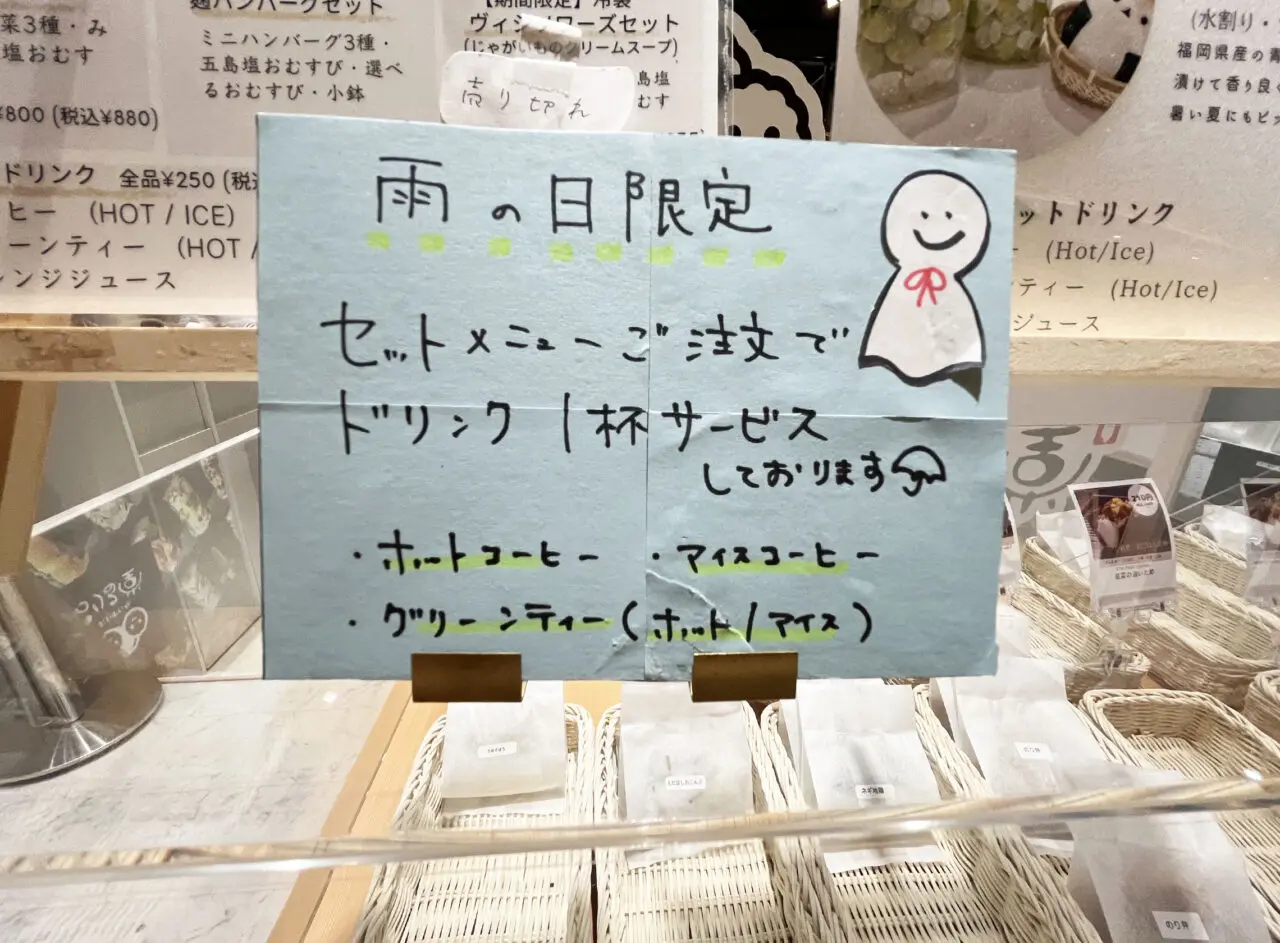 麹ハンバーグセット
ミニハンバーグ3種・
五島塩おむすび・選べ
るおむすび・小鉢
菜3種・み
塩おむす
¥800 (税込¥880)
ドリンク 全品¥250 (税
ヒー (HOT / ICE)
ーンティー (HOT /
レンジジュース
【期間限定】冷製
セット
(じゃがいものクリームスープ)
島塩
むす
売り切れ
(水割り・
福岡県産の青
漬けて香り良く
暑い夏にもピッ
ットドリンク
(Hot/Ice)
ティー (Hot/Ice)
ジュース
雨の日限定
セットメニューご注文で
ドリンク1杯サービス
しております
・ホットコーヒー ・アイスコーヒー
・グリーンティー(ホット/アイス)
のり弁